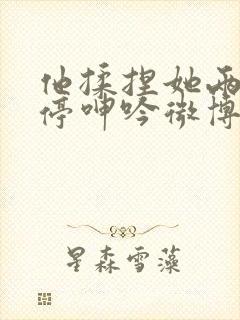 他揉捏她两
停呻吟微博
星森雪藻